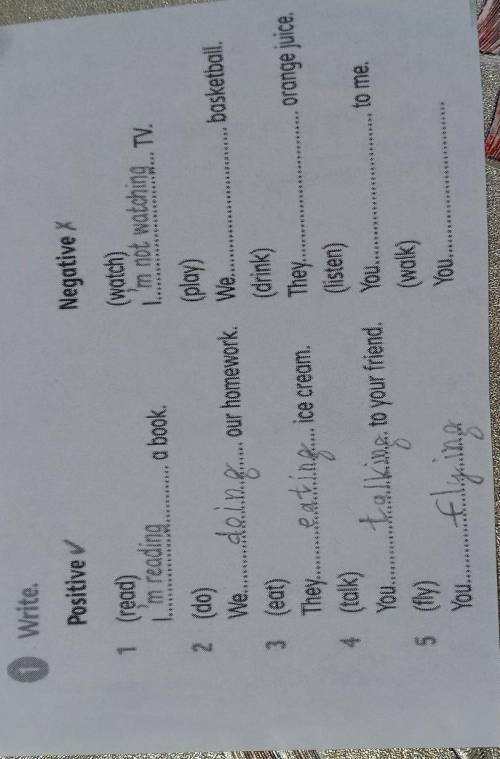 1 Write.
Positive ✓ Negative ✗
1 (read) (watch)
I 'm reading a book. I 'm not watching TV.
2 (do) (play)
We doing our homework. We basketball.
3 (eat) (drink)
They eating ice cream. They orange juice.
4 (talk) (listen)
You talking to your friend. You to me.
5 (fly) (walk)
You flying You